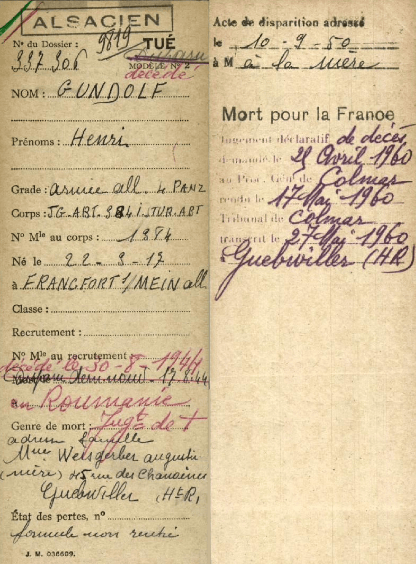 ALSACIEN
N° du Dossier : 9819 TUÉ
337 306 MODÈLE N° 2
décédé
NOM : GUNDOLF
Prénoms : Henri
Grade : armée all. 4. PANZ
Corps : JG-ART. 984 i STUR. ART
N° Mle au corps : 1984
Né le 22-9-17
à FRANCFORT s/MEIN all
Classe :
Recrutement :
N° Mle au recrutement
décédé le 30-8-1944
17.8.44
au Roumanie
Genre de mort : Jugt de †
adresse famille
Mme Weisgerber auguste
(mère) 45 rue des Chanoines
Guebwiller (H-R)
État des pertes, n°
formule non rentré
J. M. 036609.
Acte de disparition adressé
le 10-9-50
à M à la mère
Mort pour la France
Jugement déclaratif de décès
demandé le 21 Avril 1960
au Proc. Gén. de Colmar
rendu le 17 Mai 1960
Tribunal de Colmar
transcrit le 27 Mai 1960
Guebwiller (HR)